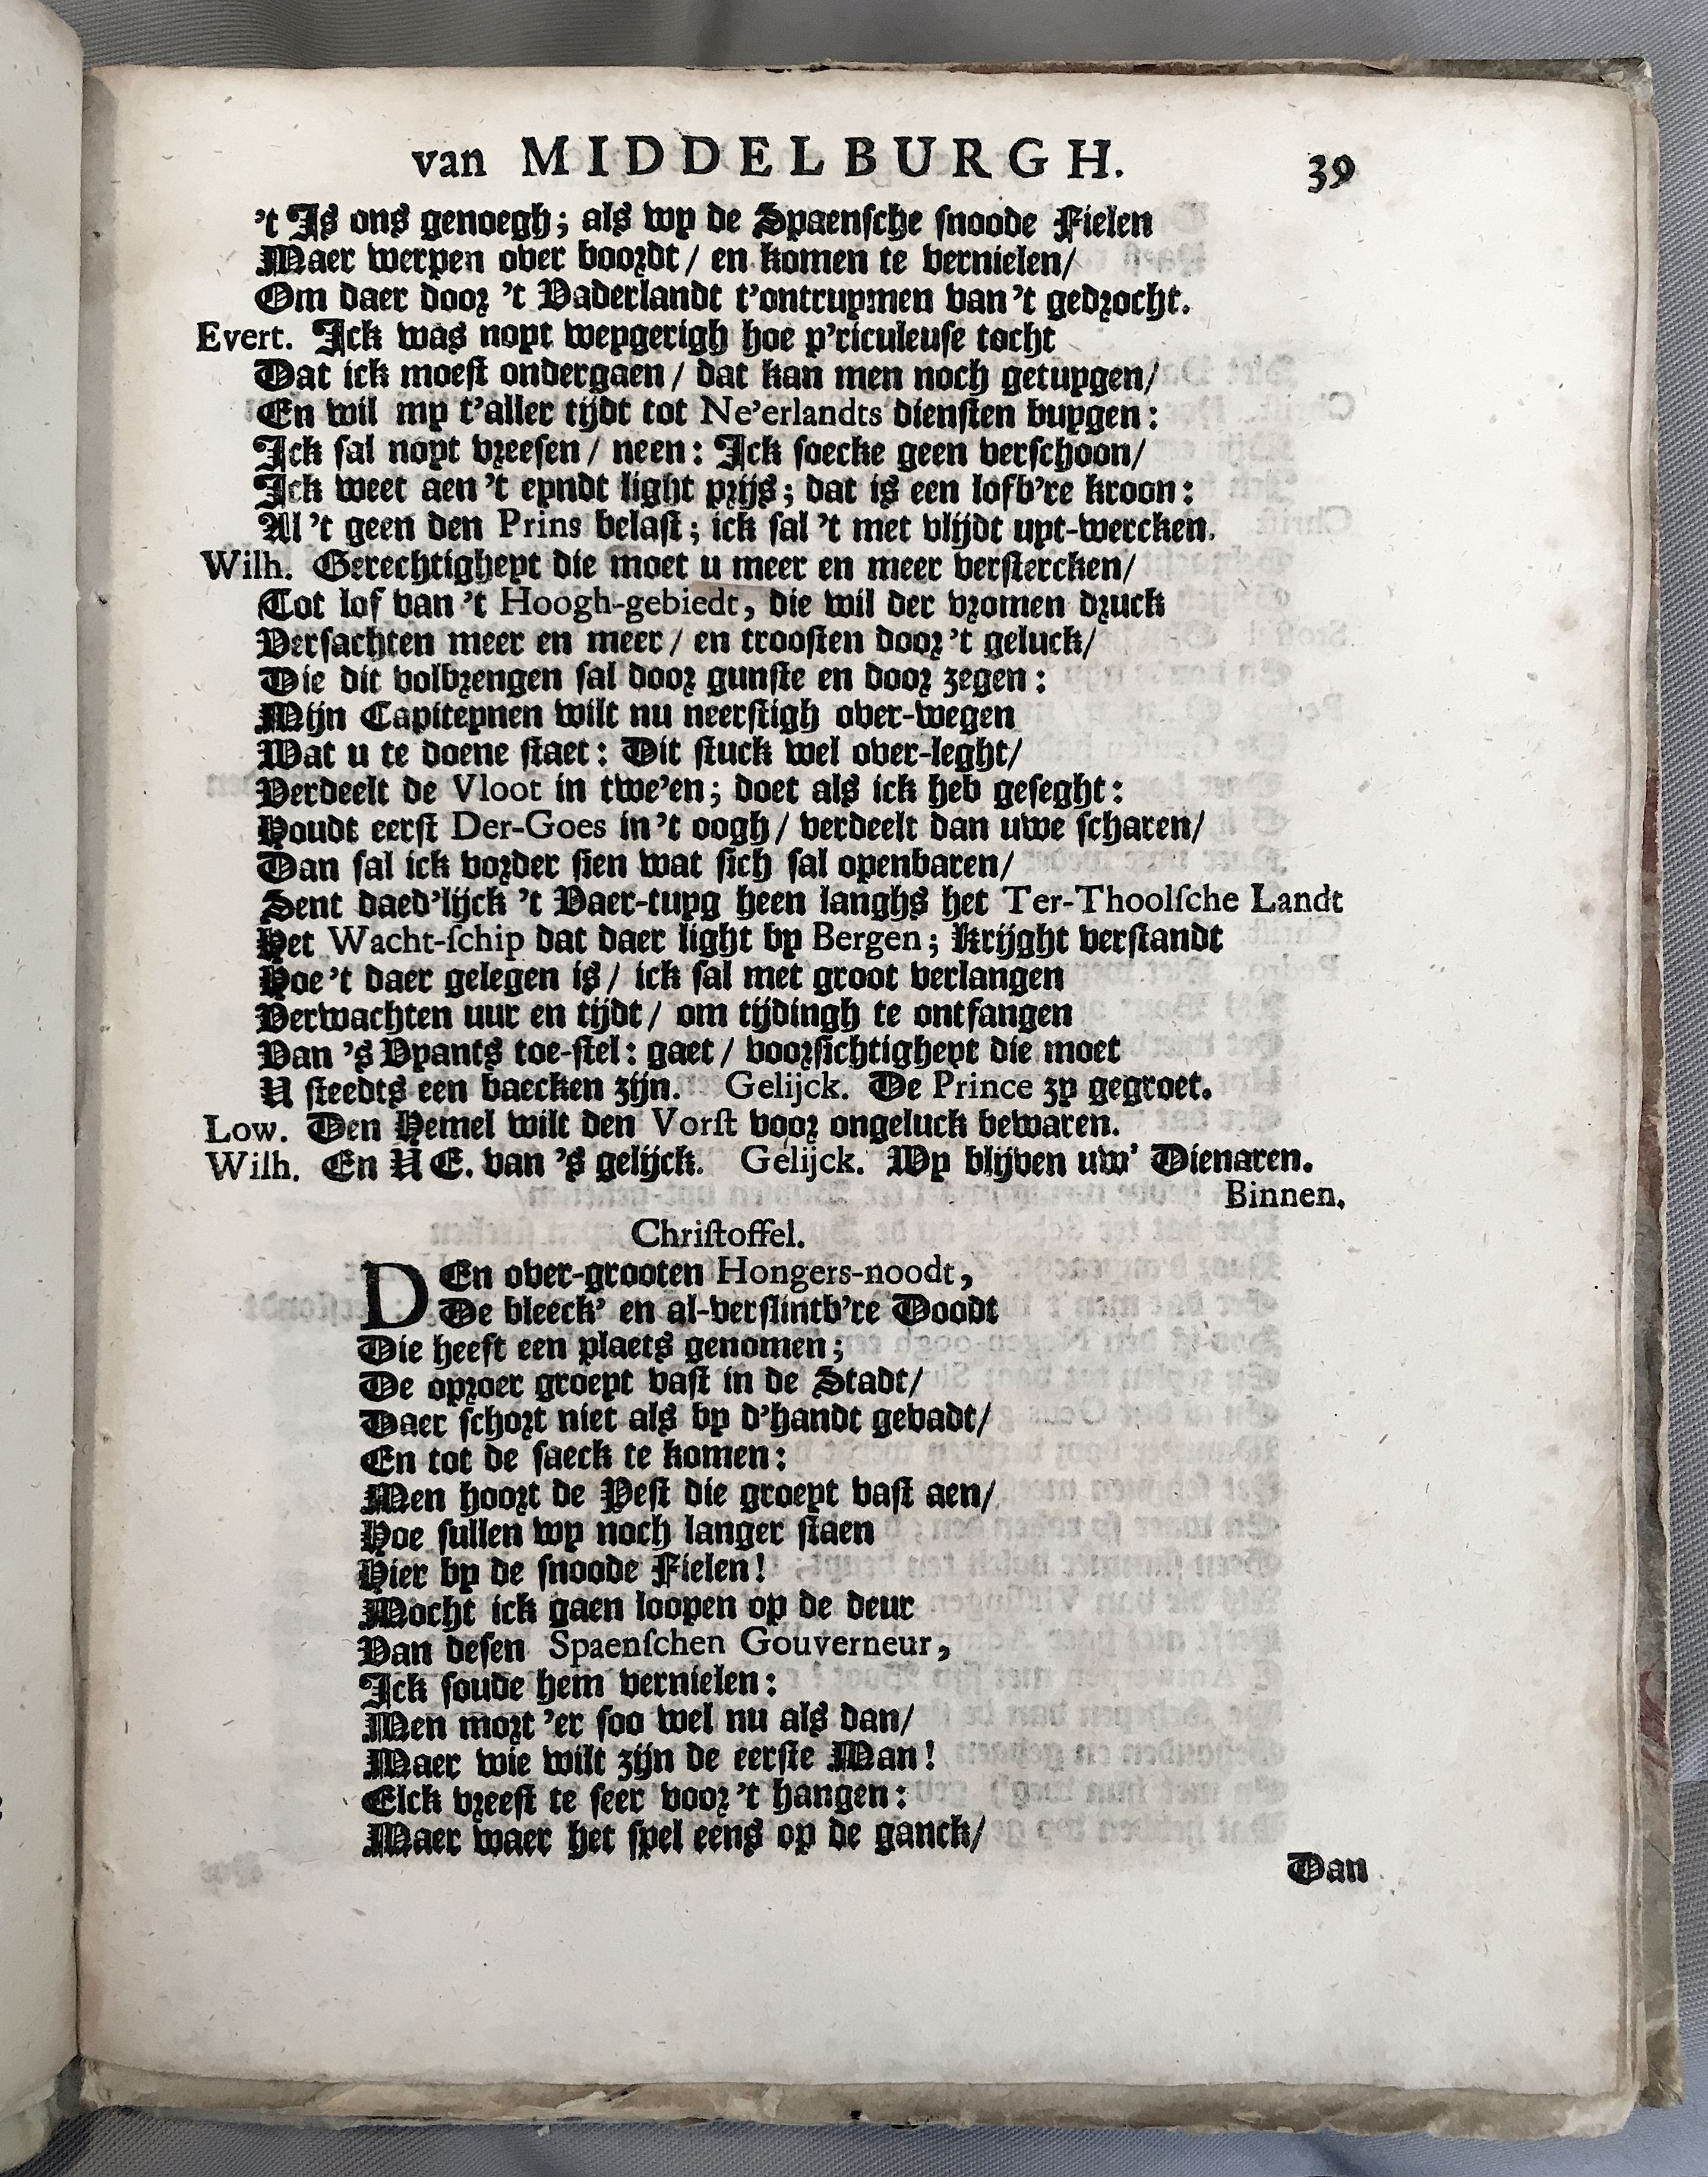 van MIDDELBURGH. 39
't Is ons genoegh; als wy de Spaensche snoode Fielen
Maer werpen over boordt/ en komen te vernielen/
Om daer door 't Vaderlandt t'ontruymen van 't gedrocht.
Evert. Ick was noyt weygerigh hoe p'riculeuse tocht
Dat ick moest ondergaen/ dat kan men noch getuygen/
En wil my t'aller tijdt tot Ne'erlandts diensten buygen:
Ick sal noyt vreesen/ neen: Ick soecke geen verschoon/
Ick weet aen 't eyndt light prijs; dat is een lofb're kroon:
Al 't geen den Prins belast; ick sal 't met vlijdt uyt-wercken.
Wilh. Gerechtigheyt die moet u meer en meer verstercken/
Tot lof van 't Hoogh-gebiedt, die wil der vromen druck
Versachten meer en meer/ en troosten door 't geluck/
Die dit volbrengen sal door gunste en door zegen:
Mijn Capiteynen wilt nu neerstigh over-wegen
Wat u te doene staet: Dit stuck wel over-leght/
Verdeelt de Vloot in twe'en; doet als ick heb geseght:
Houdt eerst Der-Goes in 't oogh/ verdeelt dan uwe scharen/
Dan sal ick vorder sien wat sich sal openbaren/
Sent daed'lijck 't Vaer-tuyg heen langhs het Ter-Thoolsche Landt
Het Wacht-schip dat daer light by Bergen; Krijght verstandt
Hoe 't daer gelegen is/ ick sal met groot verlangen
Verwachten uur en tijdt/ om tijdingh te ontfangen
Van 's Vyants toe-stel: gaet/ voorsichtigheyt die moet
U steedts een baecken zijn. Gelijck. De Prince zy gegroet.
Low. Den Hemel wilt den Vorst voor ongeluck bewaren.
Wilh. En U E. van 's gelijck. Gelijck. Wy blijven uw' Dienaren.
Binnen.
Christoffel.
DEn over-grooten Hongers-noodt,
De bleeck' en al-verslintb're Doodt
Die heeft een plaets genomen;
De oproer groeyt vast in de Stadt/
Daer schort niet als by d'handt gevadt/
En tot de saeck te komen:
Men hoort de Pest die groeyt vast aen/
Hoe sullen wy noch langer staen
Hier by de snoode Fielen!
Mocht ick gaen loopen op de deur
Van desen Spaenschen Gouverneur,
Ick soude hem vernielen:
Men mort 'er soo wel nu als dan/
Maer wie wilt zijn de eerste Man!
Elck vreest te seer voor 't hangen:
Maer waer het spel eens op de ganck/
Dan